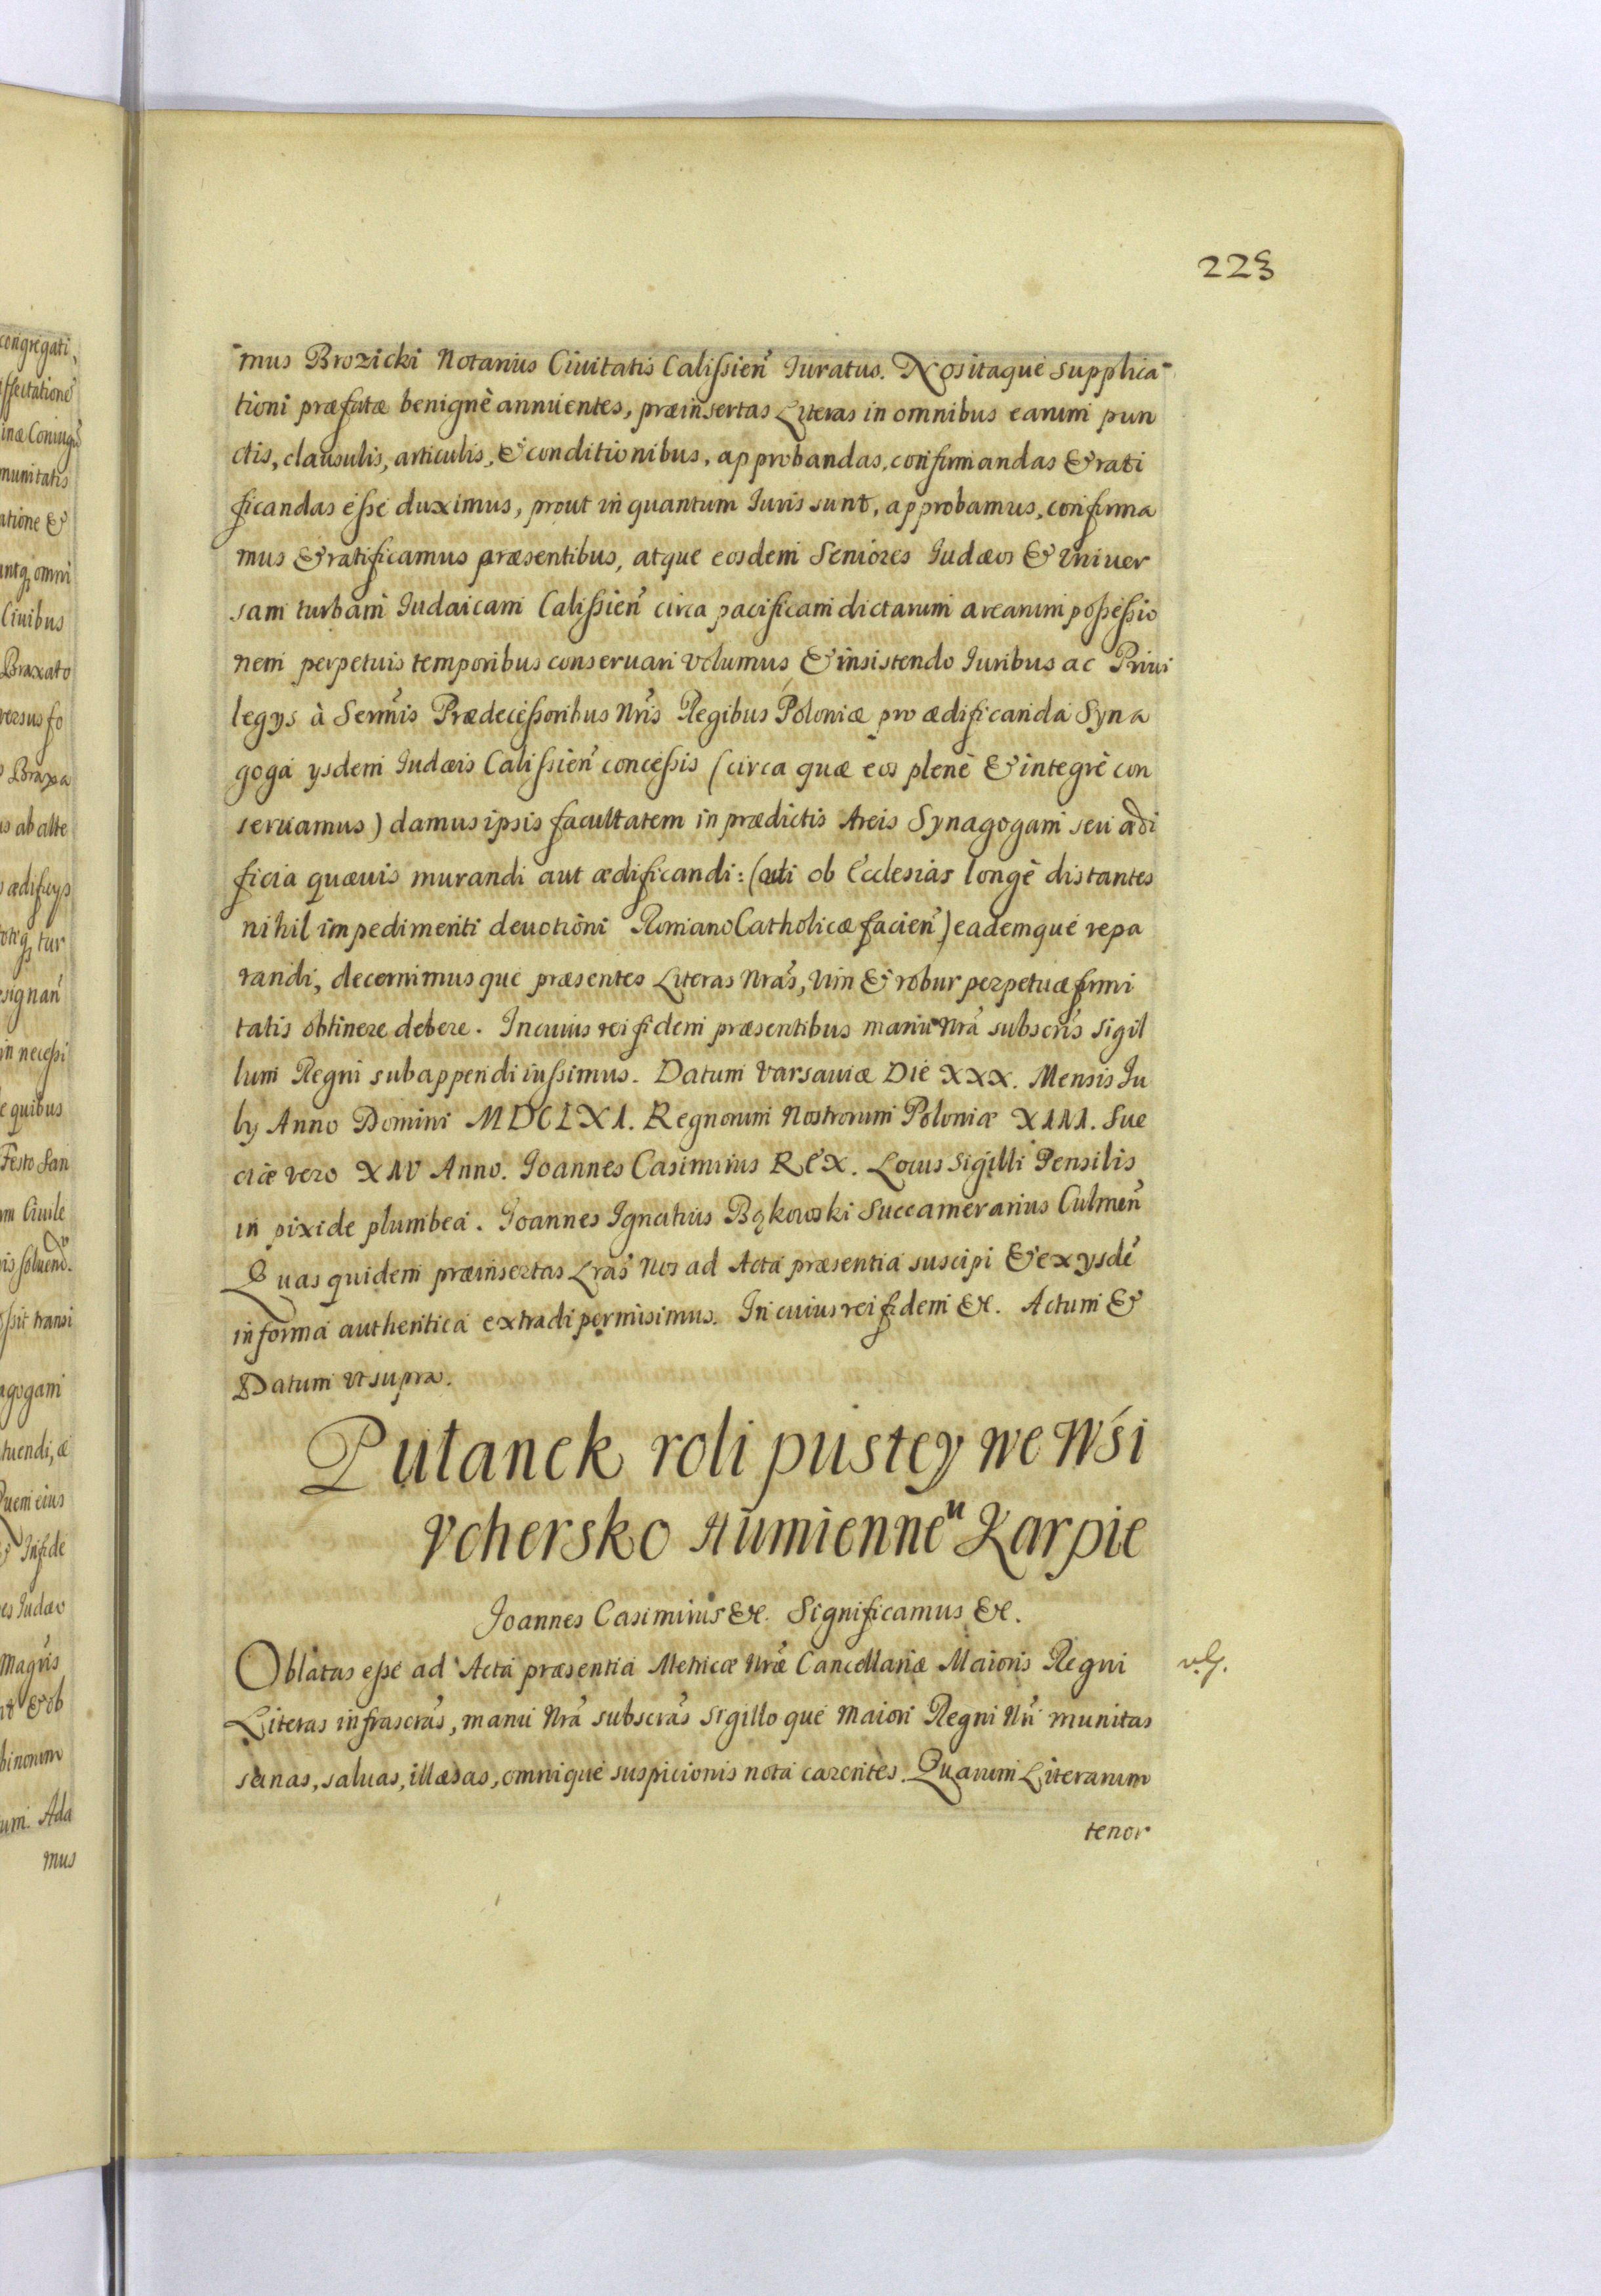 223
mus Brozicki Notarius Ciuitatis Calissień Iuratus. Nos itaque supplica
tioni præfatæ benignè annuentes, præinsertas Literas in omnibus earum pun
ctis, clausulis, articulis, & conditionibus, approbandas, confirmandas & rati
ficandas esse duximus, prout in quantum Iuris sunt, approbamus, confirma
mus & ratificamus præsentibus, atque eosdem Seniores Iudæos & Vniuer
sam turbam Iudaicam Calissień circa pacificam dictarum arearum possessio
nem perpetuis temporibus conseruari volumus & insistendo Iuribus ac Priui
legys à Sermis Prædecessoribus Nris Regibus Poloniæ pro ædificanda Syna
goga ysdem Iudæis Calissień concessis (circa quæ eos plenè & integrè con
seruamus) damus ipsis facultatem in prædictis Areis Synagogam seu ædi
ficia quæuis murandi aut ædificandi: (uti ob Ecclesias longè distantes
nihil impedimenti deuotioni Romano Catholicæ facień) eademque repa
randi, decernimusque præsentes Literas Nras, vim & robur perpetuæ firmi
tatis obtinere debere. In cuius rei fidem præsentibus manu Nra subscris Sigil
lum Regni subappendi iussimus. Datum Varsauiæ Die XXX. Mensis Iu
ly Anno Domini MDCLXI. Regnorum Nostrorum Poloniæ XIII. Sue
ciæ vero XIV Anno. Ioannes Casimirus REX. Locus Sigilli Pensilis
in pixide plumbea. Ioannes Ignatius Bąkowski Succamerarius Culmeń
Quas quidem præinsertas Lras Nos ad Acta præsentia suscipi & ex ysdē
in forma authentica extradi permisimus. In cuius rei fidem &c. Actum &
Datum vt supra.
Pułanek roli pustey we Wśi
Vchersko Humienne Karpie
Ioannes Casimirus &c. Significamus &c.
Oblatas esse ad Acta præsentia Metricæ Nræ Cancellariæ Maioris Regni
Literas infrascras, manu Nra subscras Sigilloque Maiori Regni Nri munitas
sanas, saluas, illæsas, omnique suspicionis nota carentes. Quarum Literarum
tenor